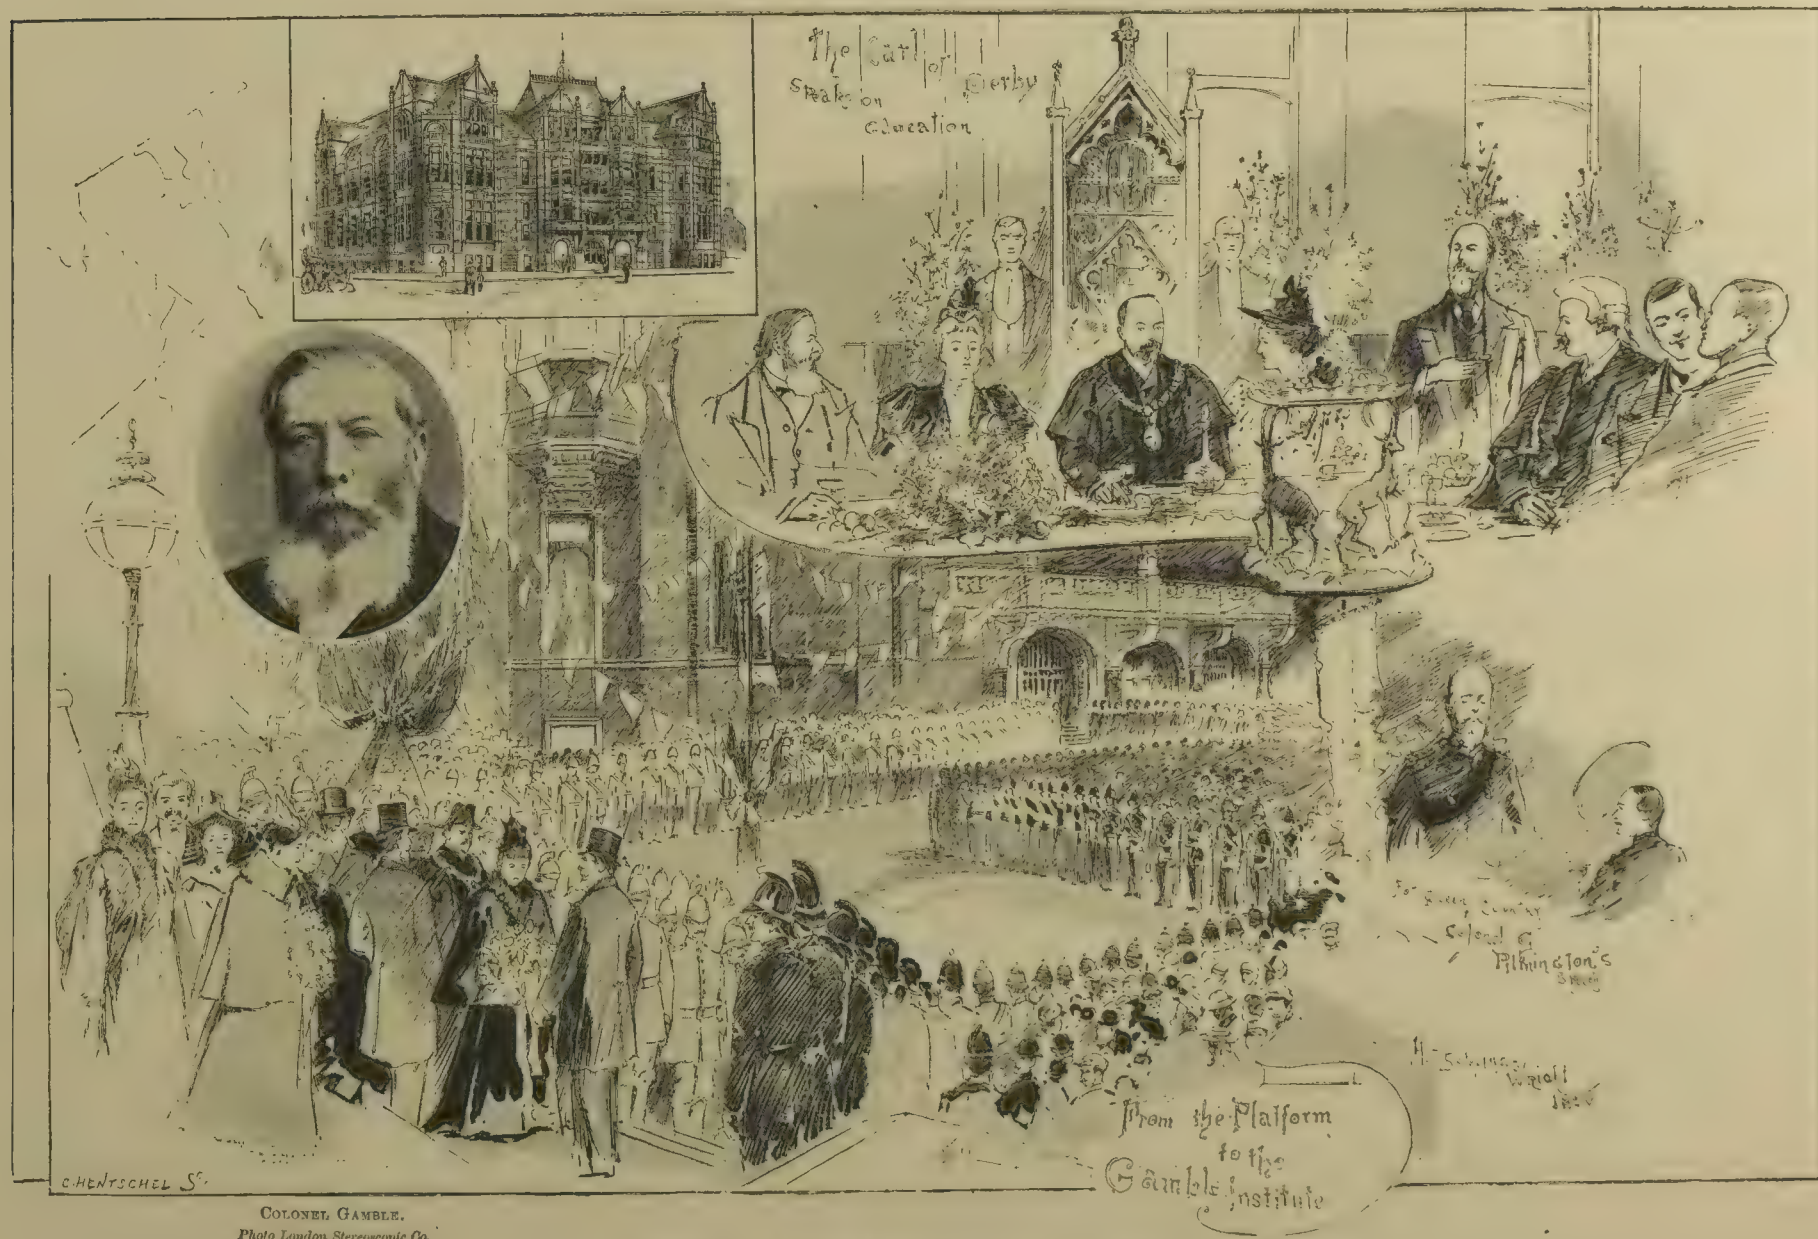 The Earl of Derby
speaks on
education
For Queen, Country
Colonel
Pilkington's
H.
Wright
From the Platform
to the
Gamble Institute
C. HENTSCHEL Sc.
COLONEL GAMBLE.
Photo London Stereoscopic Co.